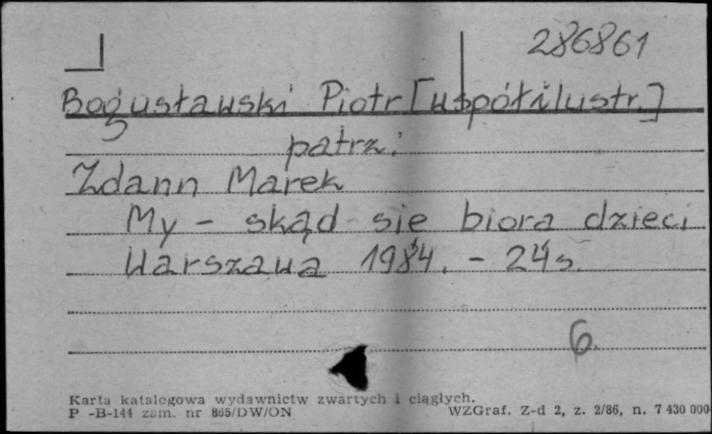 286861
Bogusławski Piotr [współilustr.]
patrz:
Zdann Marek
My - skąd się biora dzieci
Warszawa 1984. - 24 s.
6.
Karta katalogowa wydawnictw zwartych i ciągłych.
P -B-144 zam. nr 865/DW/ON WZGraf. Z-d 2, z. 2/86, n. 7 430 000